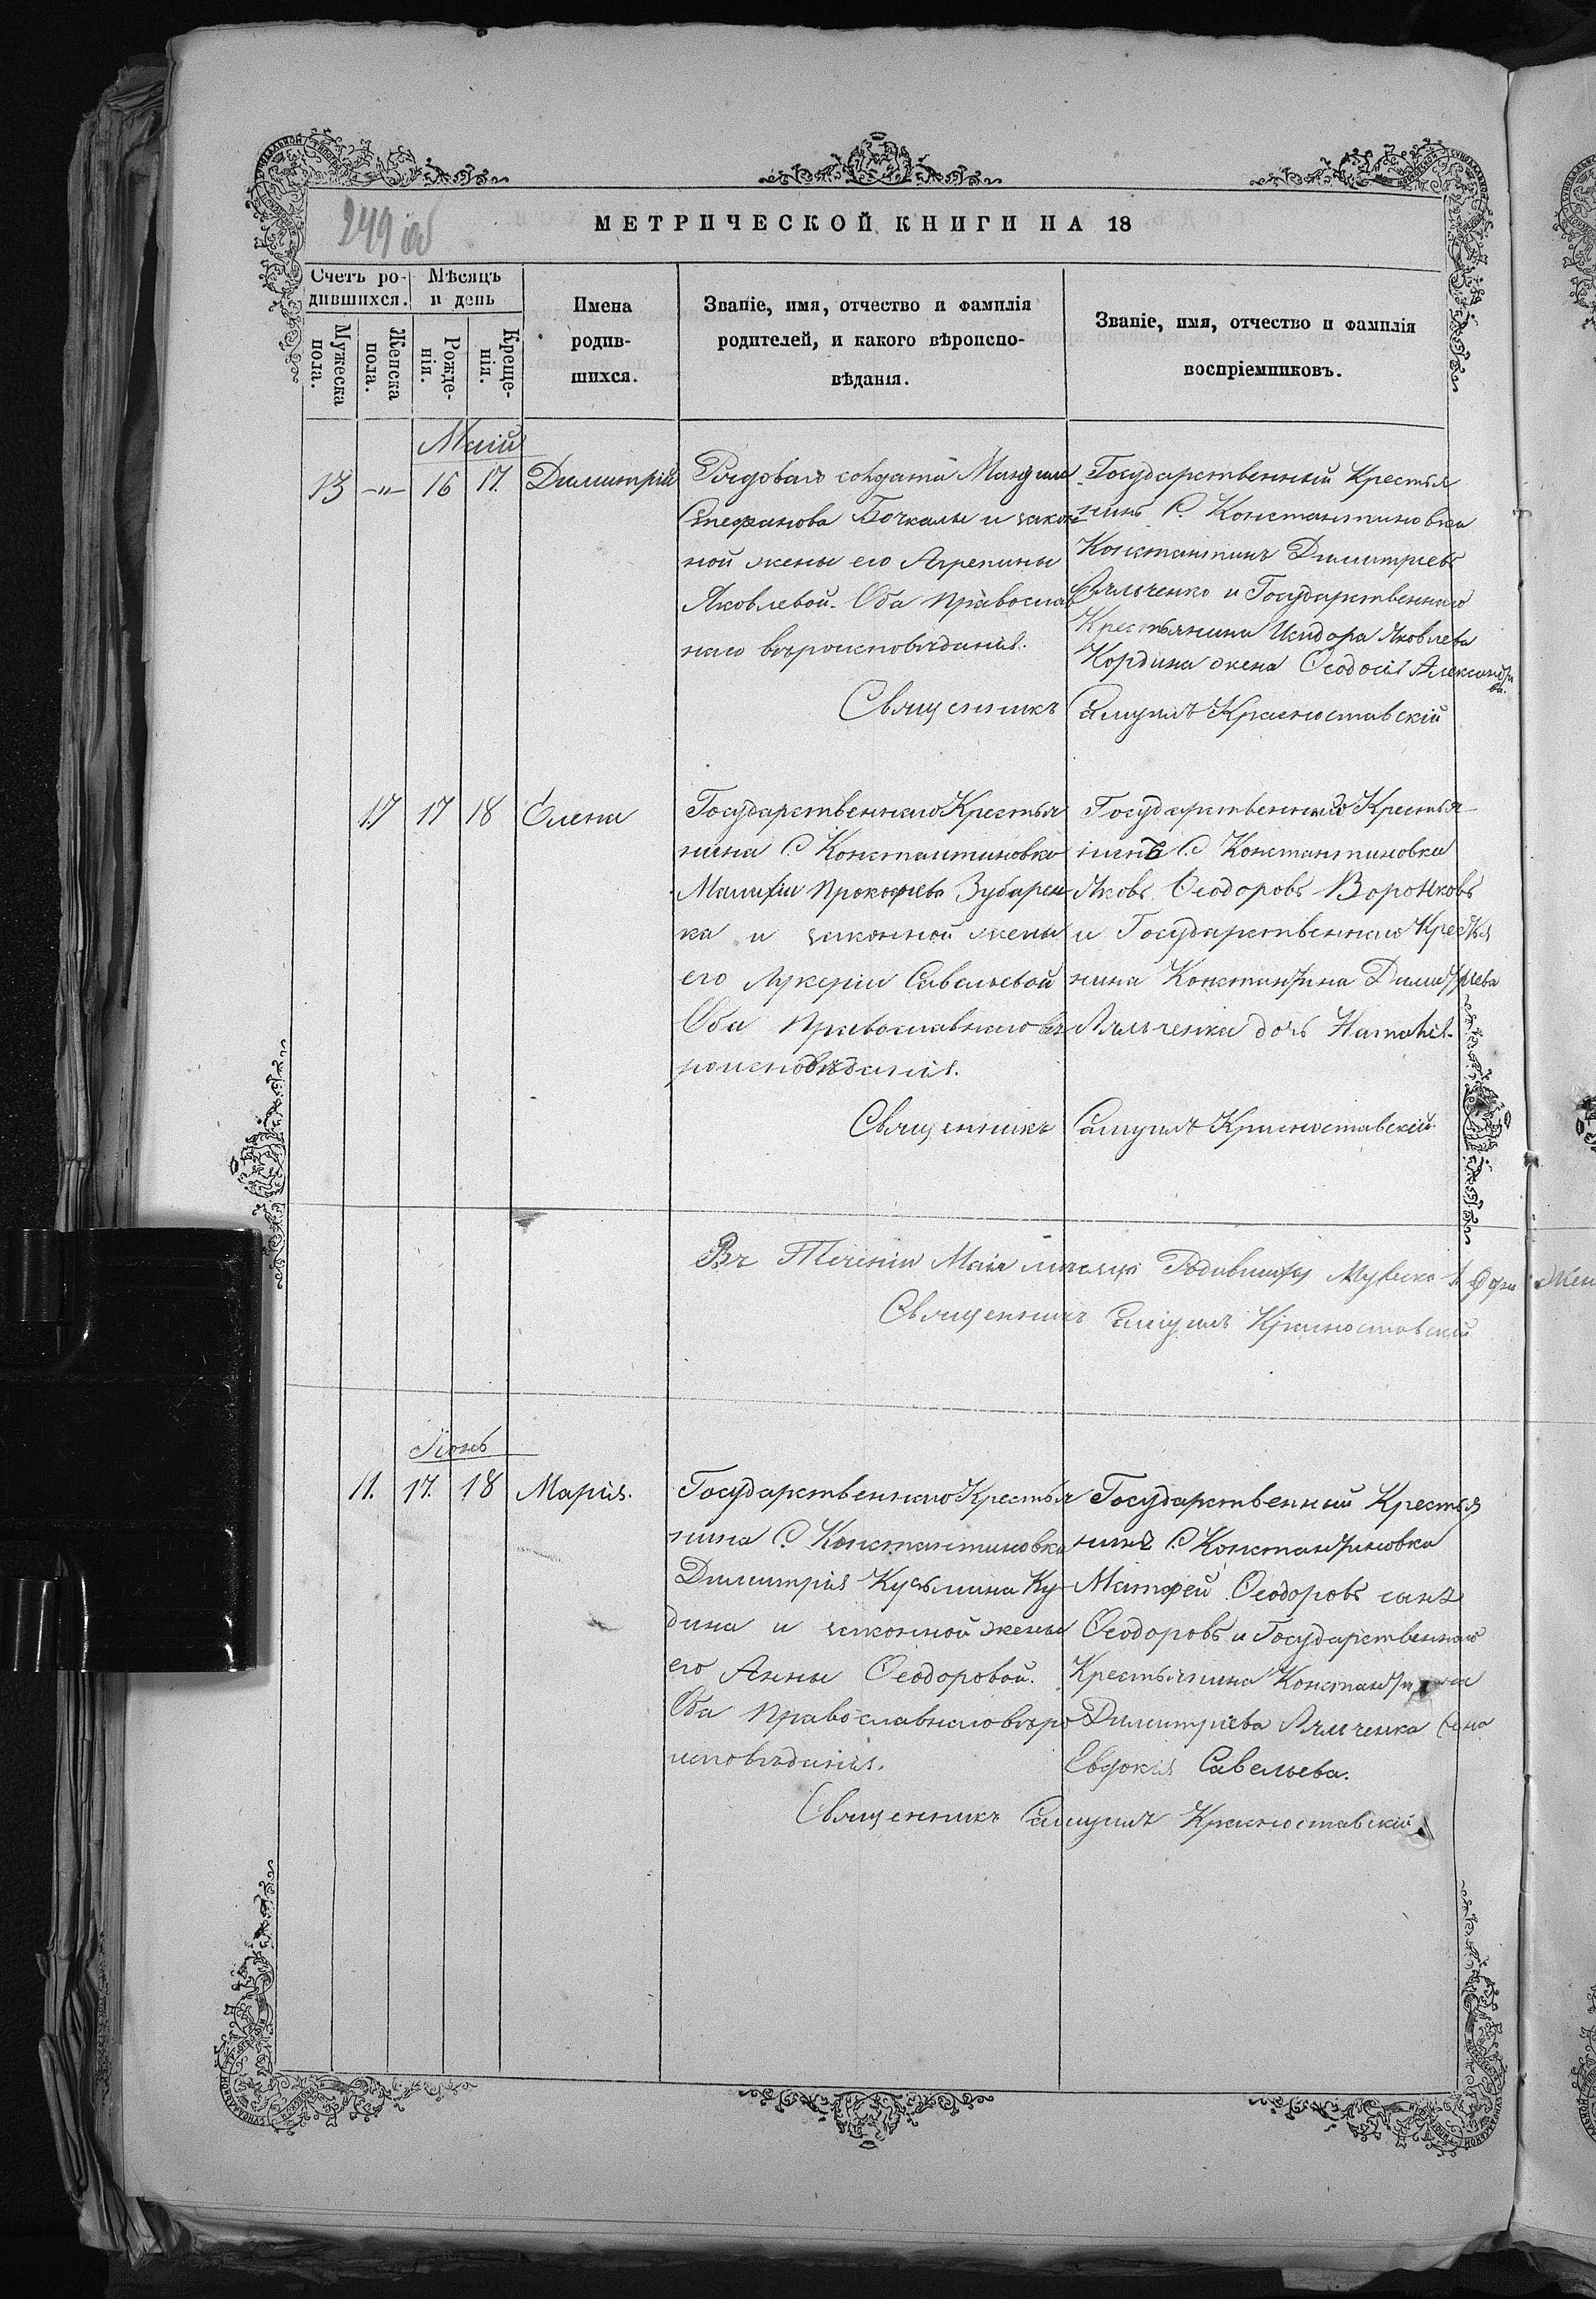 249 об
МЕТРИЧЕСКОЙ КНИГИ НА 18
Счетъ ро-
дившихся.
Мѣсяцъ
и день
Мужеска
пола.
Женска
пола.
Рожде-
нія.
Креще-
нія.
Имена
родив-
шихся.
Званіе, имя, отчество и фамилія
родителей, и какого вѣроиспо-
вѣданія.
Званіе, имя, отчество и фамилія
воспріемниковъ.
Маій
13 -"- 16 17. Димитрій
Рядоваго солдата
Стефанова Бочкалы и закон-
ной жены его Агрепины
Яковлевой. Оба Православ
наго вѣроисповѣданія.
Государственный Крестья
нинъ С. Константиновки
Константинъ Димитріевъ
Ляльченко и Государственнаго
Крестьянина Исидора Яковлева
Кордина жена Ѳеодосія Александро
ва.
Священникъ Самуилъ Красноставскій
17 18 Елена
Государственнаго Крестья
нина С. Константиновки
Прокофьева Зубарен
ка и законной жены
его Лукеріи Савельевой
Оба Православнаго вѣ
роисповѣданія.
Государственнаго Крестья
нинъ С. Константиновки
Яковъ Ѳеодоровъ Воронковъ
и Государственнаго Крестья
нина Константина Димитріева
Ляльченка дочь Наталія.
Священникъ Самуилъ Красноставскій
Въ Теченіи Маія мѣсяца Родившихся Мужеска 1 Жен
Священникъ Самуилъ Красноставскій
Іюнь
11. 17. 18 Марія.
Государственнаго Крестья
нина С. Константиновки
Димитрія Кузьмина Ку-
дина и законной жены
его Анны Ѳеодоровой.
Оба Православнаго вѣро
исповѣданія.
Государственный Крестья
нинъ С. Константиновки
Матфей Ѳеодоровъ сынъ
Ѳеодоровъ и Государственнаго
Крестьянина Константина
Димитріева Ляльченка жена
Евдокія Савельева.
Священникъ Самуилъ Красноставскій